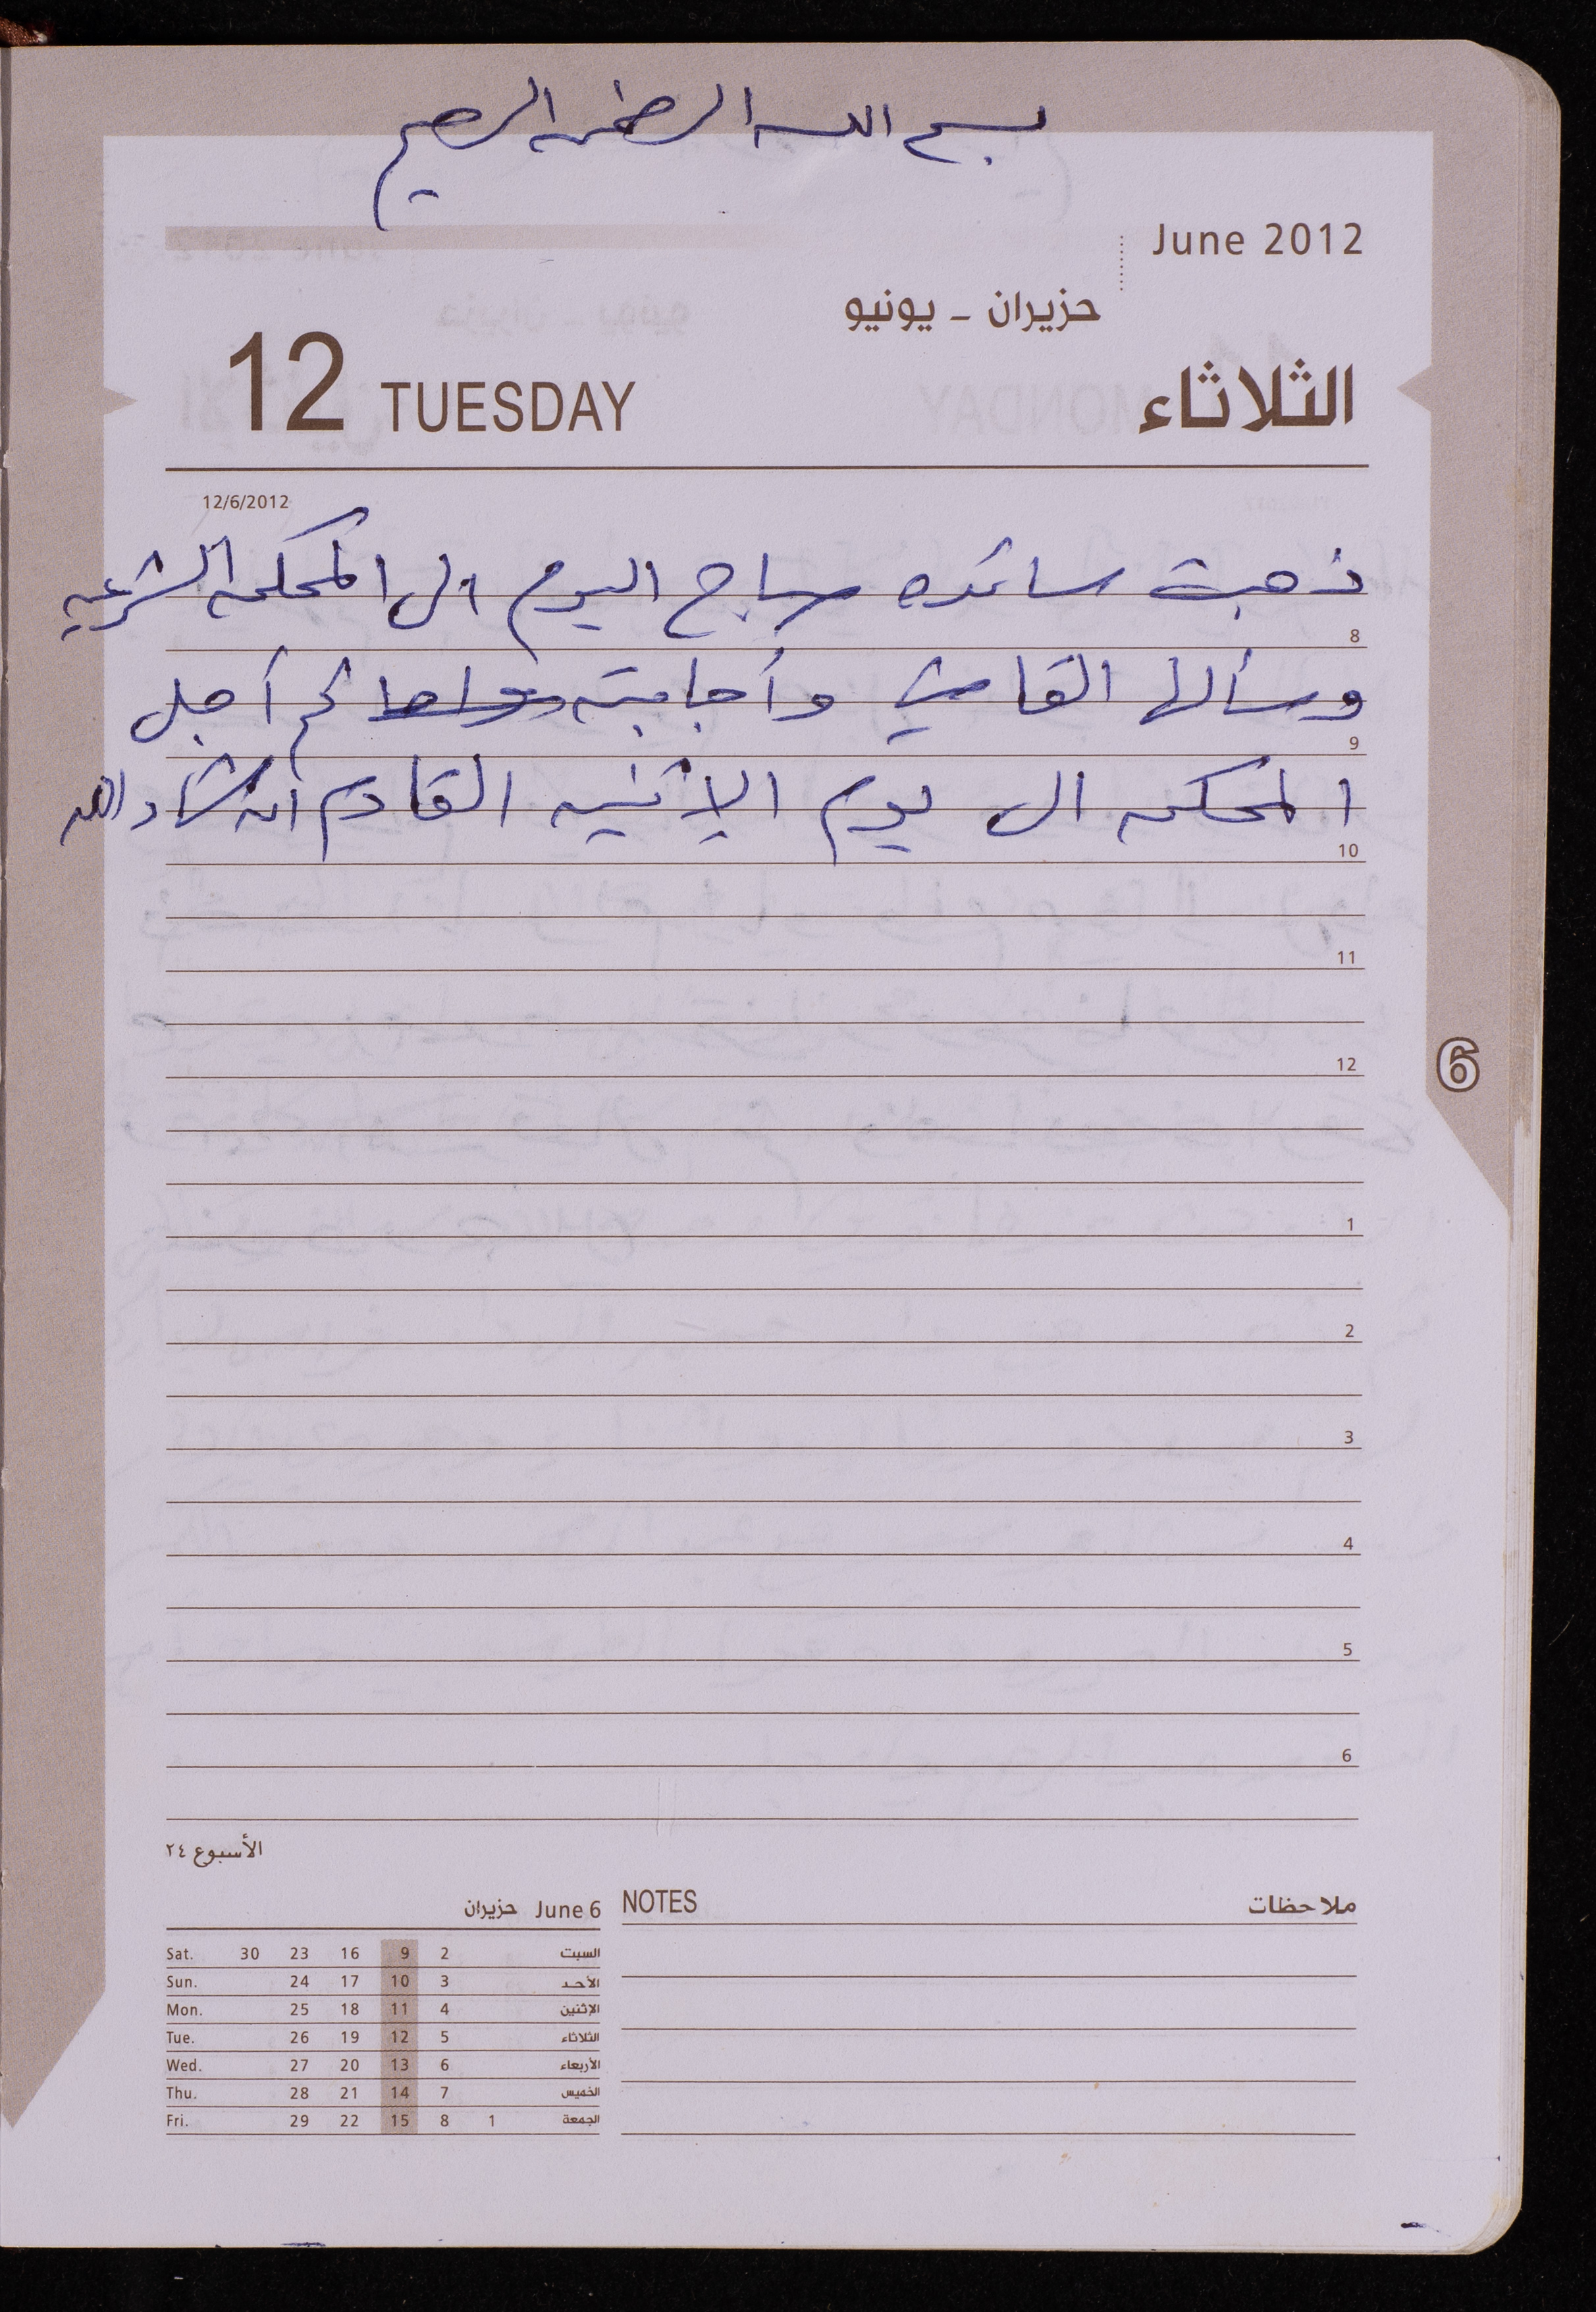 بسم الله الرحمن الرحيم
June 2012
حزيران - يونيو
12 TUESDAY الثلاثاء
12/6/2012
ذهبت سائده صباح اليوم الى المحكمه الشرعيه
8
وسألها القاضي وأجابته ثم أجل
9
المحكمه الى يوم الإثنين القادم ان شاء الله
10
11
12
6
1
2
3
4
5
6
الأسبوع ٢٤
حزيران June 6
NOTES ملاحظات
Sat. 30 23 16 9 2 السبت
Sun. 24 17 10 3 الأحد
Mon. 25 18 11 4 الإثنين
Tue. 26 19 12 5 الثلاثاء
Wed. 27 20 13 6 الأربعاء
Thu. 28 21 14 7 الخميس
Fri. 29 22 15 8 1 الجمعة